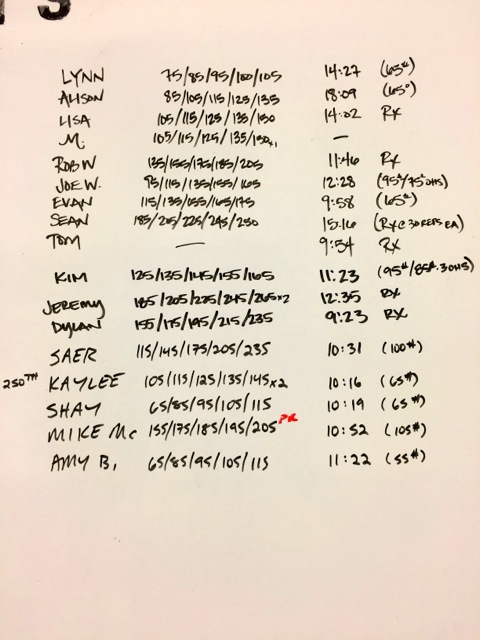 S
LYNN 75/85/95/100/105 14:27 (65#)
ALISON 85/105/115/125/135 18:09 (65#)
LISA 105/115/125/135/150 14:02 RX
M. 105/115/125/135/150x1 —
ROB W 135/155/175/185/205 11:46 RX
JOE W. 95/115/135/155/165 12:28 (95#/75# OHS)
EVAN 115/135/155/165/175 9:58 (65#)
SEAN 185/205/225/245/250 15:16 (RX C 30 REPS EA)
TOM — 9:54 RX
KIM 125/135/145/155/165 11:23 (95#/85#.30HS)
JEREMY 185/205/225/245/265x2 12:35 RX
DYLAN 155/175/195/215/235 9:23 RX
SAER 115/145/175/205/235 10:31 (100#)
250TH KAYLEE 105/115/125/135/145x2 10:16 (65#)
SHAY 65/85/95/105/115 10:19 (65#)
MIKE Mc 155/175/185/195/205 PR 10:52 (105#)
AMY B. 65/85/95/105/115 11:22 (55#)